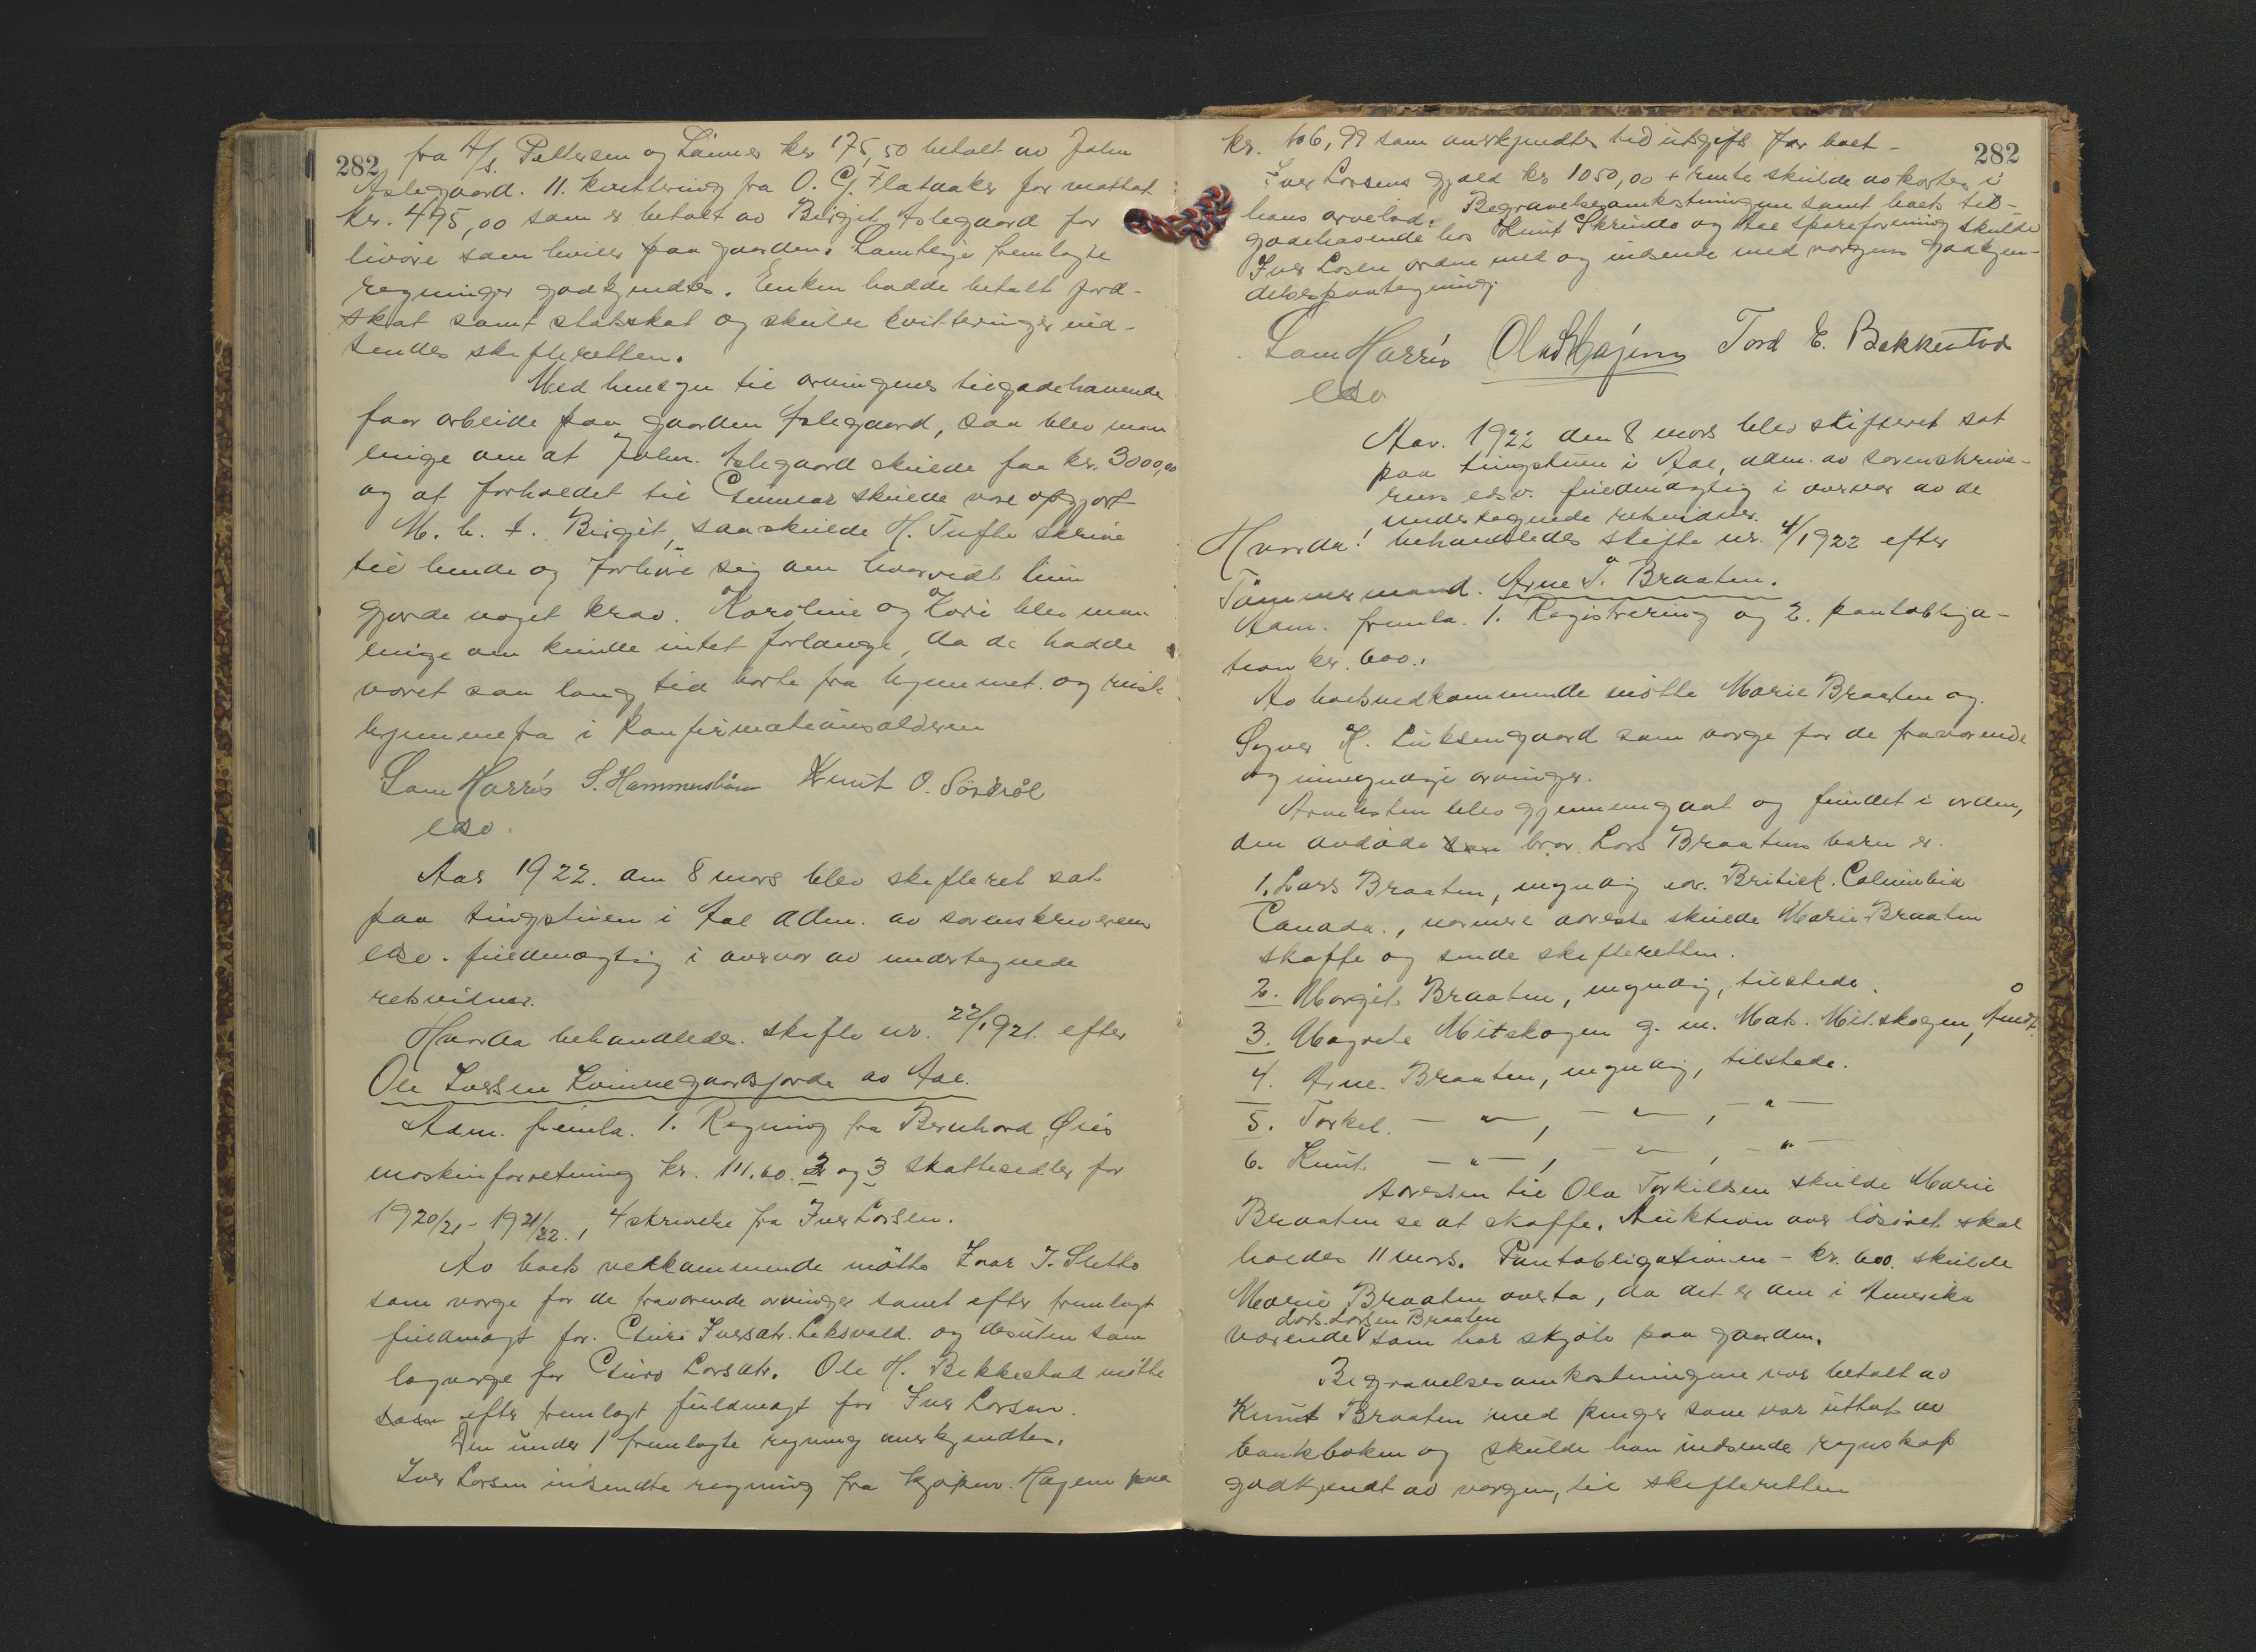 282
fra A/s. Pettersen og Linnes kr 175,50 betalt av John
Aslegaard. 11. kvittering fra O. G. Flataaker for mottat
kr. 495,00 som er betalt av Birgit Aslegaard for
livöre som hviler paa gaarden. Samtlige fremlagte
regninger godkjendtes. Enken hadde betalt jord-
skat samt statsskat og skulde kvitteringer ind-
sendes skifteretten.
Med hensyn til arvingenes tilgodehavende
for arbeide paa gaarden Aslegaard, saa blev man
enige om at John Aslegaard skulde faa kr. 3000,00
og at forholdet til Gunnar skulde være opgjort
M. h. t. Birgit, saa skulde H. Tufte skrive
til hende og forhöre sig om hvorvidt hun
gjorde noget krav. Karoline og Kari blev man
enige om kunde intet forlange, da de hadde
været saa lang tid borte fra hjemmet og reiste
hjemmefra i konfirmationsalderen
Sam Harris S. Hammersbøen Knut O. Sördröl
edsv.
Aar 1922. den 8 mars blev skifteret sat
paa tingstuen i Aal adm. av sorenskriverens
edsv. fuldmægtig i overvær av undertegnede
retsvidner.
Hvorda behandledes skifte nr. 22/1921. efter
Ole Larsen Kvinnegaardsjorde av Aal.
Adm. fremla. 1. Regning fra Bernhard Øies
maskinforretning kr. 111.60. 2 og 3 skattesedler for
1920/21 - 1921/22., 4 skrivelse fra Iver Larsen.
Av boets vedkommende mötte Ivar T. Sletto
som verge for de fraværende arvinger samt efter fremlagt
fuldmagt for Guri Iversdtr. Leksvold og desuten som
lagverge for Guro Larsdtr. Ole H. Bekkestad mötte
som efter fremlagt fuldmagt for Iver Larsen.
Den under 1 fremlagte regning anerkjendtes.
Iver Larsen indsendte regning fra kjöpm. Hagen paa
282
kr. 106,99 som anerkjendtes ved utgift for boet -
Iver Larsens gjæld kr 1050,00 + rente skulde avkortes i
hans arvelod. Begravelsesomkostningene samt boets til-
godehavende hos Knut Skrindo og Aal spareforening skulde
Iver Larsen ordne med og indsende med vergens godkjen-
delsespaategning.
Sam Harris Olav Hagen Tord E. Bekkestad
edsv
Aar 1922 den 8 mars blev skifteret sat
paa tingstuen i Aal, adm. av sorenskrive-
rens edsv. fuldmægtig i overvær av de
undertegnede retsvidner.
Hvorda! behandledes skifte nr. 4/1922 efter
Tömmermand. Arne T. Braaten.
Adm. fremla. 1. Registrering og 2. pantobliga-
tion kr. 600.,
Av boetsvedkommende mötte Marie Braaten og
Sygner H. Luksengaard som verge for de fraværende
og umyndige arvinger.
Arvelisten blev gjennemgaat og fundet i orden,
den avdöde som bror Lars Braatens barn er.
1. Lars Braaten, myndig adr. Britisk. Columbia
Canada., nærmere adresse skulde Marie Braaten
skaffe og sende skifteretten.
2. Margit Braaten, myndig, tilstede.
3. Magrete Mitskogen g. m. Mat. Mit.skogen, Åmot.
4. Arne Braaten, myndig, tilstede.
5. Torkel. - " -, - " -, - " -
6. Knut - " -, - " -, - " -
Adressen til Ola Torkildsen skulde Marie
Braaten se at skaffe. Auktion over lösöret skal
holdes 11 mars. Pantobligationen - kr. 600. skulde
Marie Braaten overta, da det er den i Amerika
Lars. Larsen Braaten
værende som har skjöte paa gaarden.
Begravelsesomkostningene var betalt av
Knut Braaten med penger som var uttat av
bankboken og skulde han indsende regnskap
godkjendt av vergen, til skifteretten